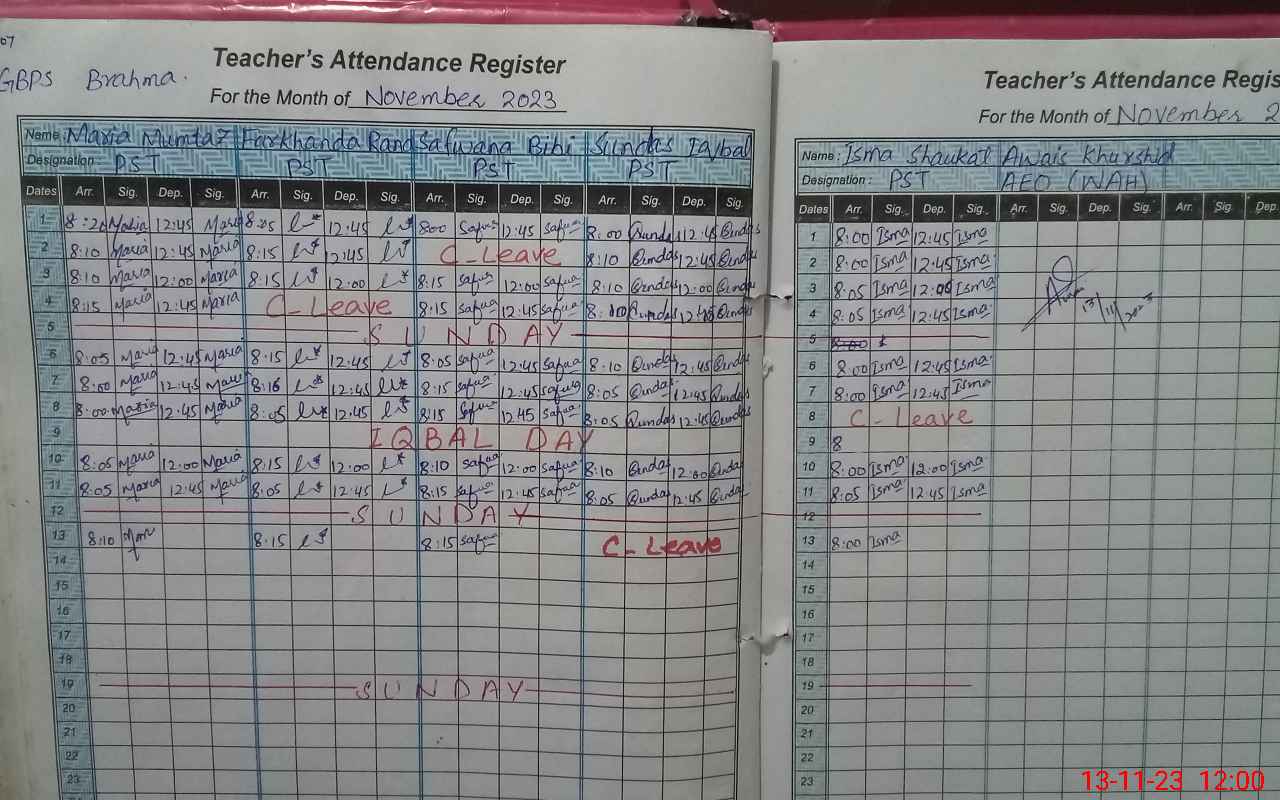 07
GBPS Brahma.
Teacher's Attendance Register
For the Month of November 2023
Name: Maria Mumtaz Farkhanda Rana Safwana Bibi Sundas Iqbal
Designation: PST PST PST PST
Dates Arr. Sig. Dep. Sig. Arr. Sig. Dep. Sig. Arr. Sig. Dep. Sig. Arr. Sig. Dep. Sig.
1 8:20 Maria 12:45 Maria 8:05 12:45 8:00 Safwa 12:45 Safwa 8:00 12:45
2 8:10 Maria 12:45 Maria 8:15 12:45 C-Leave 8:10 12:45
3 8:10 Maria 12:00 Maria 8:15 12:00 8:15 Safwa 12:00 Safwa 8:10 12:00
4 8:15 Maria 12:45 Maria C-Leave 8:15 Safwa 12:45 Safwa 8:10 12:45
5 SUNDAY
6 8:05 Maria 12:45 Maria 8:15 12:45 8:05 Safwa 12:45 Safwa 8:10 12:45
7 8:00 Maria 12:45 Maria 8:16 12:45 8:15 Safwa 12:45 Safwa 8:05 12:45
8 8:00 Maria 12:45 Maria 8:05 12:45 8:15 Safwa 12:45 Safwa 8:05 12:45
9 IQBAL DAY
10 8:05 Maria 12:00 Maria 8:15 12:00 8:10 Safwa 12:00 Safwa 8:10 12:00
11 8:05 Maria 12:45 Maria 8:05 12:45 8:15 Safwa 12:45 Safwa 8:05 12:45
12 SUNDAY
13 8:10 8:15 8:15 Safwa C-Leave
14
15
16
17
18
19 SUNDAY
20
21
22
23
Teacher's Attendance Regis
For the Month of November 2
Name: Isma Shaukat Awais Khurshid
Designation: PST AEO (WAH)
Dates Arr. Sig. Dep. Sig. Arr. Sig. Dep. Sig. Arr. Sig Dep.
1 8:00 Isma 12:45 Isma
2 8:00 Isma 12:45 Isma
3 8:05 Isma 12:00 Isma
4 8:05 Isma 12:45 Isma
13/11/2023
5
6 8:00 Isma 12:45 Isma
7 8:00 Isma 12:45 Isma
8 C-Leave
9 8
10 8:00 Isma 12:00 Isma
11 8:05 Isma 12:45 Isma
12
13 8:00 Isma
14
15
16
17
18
19
20
21
22
23
13-11-23 12:00